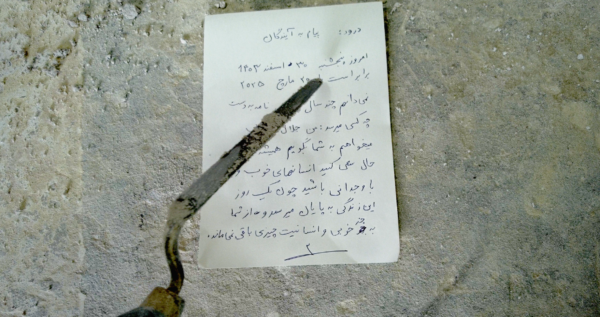 درود: پیام به آیندگان
امروز پنجشنبه ۳۰ اسفند ۱۴۰۳
برابر است مارچ ۲۰۲۵
نمی‌دانم چند سال بدست
چه کسی میرسد: من جلال
میخواهم به شما بگویم همیشه
حال سعی کنید انسانهای خوب و
با وجدانی باشید چون یک روز
این زندگی به پایان میرسد و از شما
به جز خوبی و انسانیت چیزی باقی نمی‌ماند.